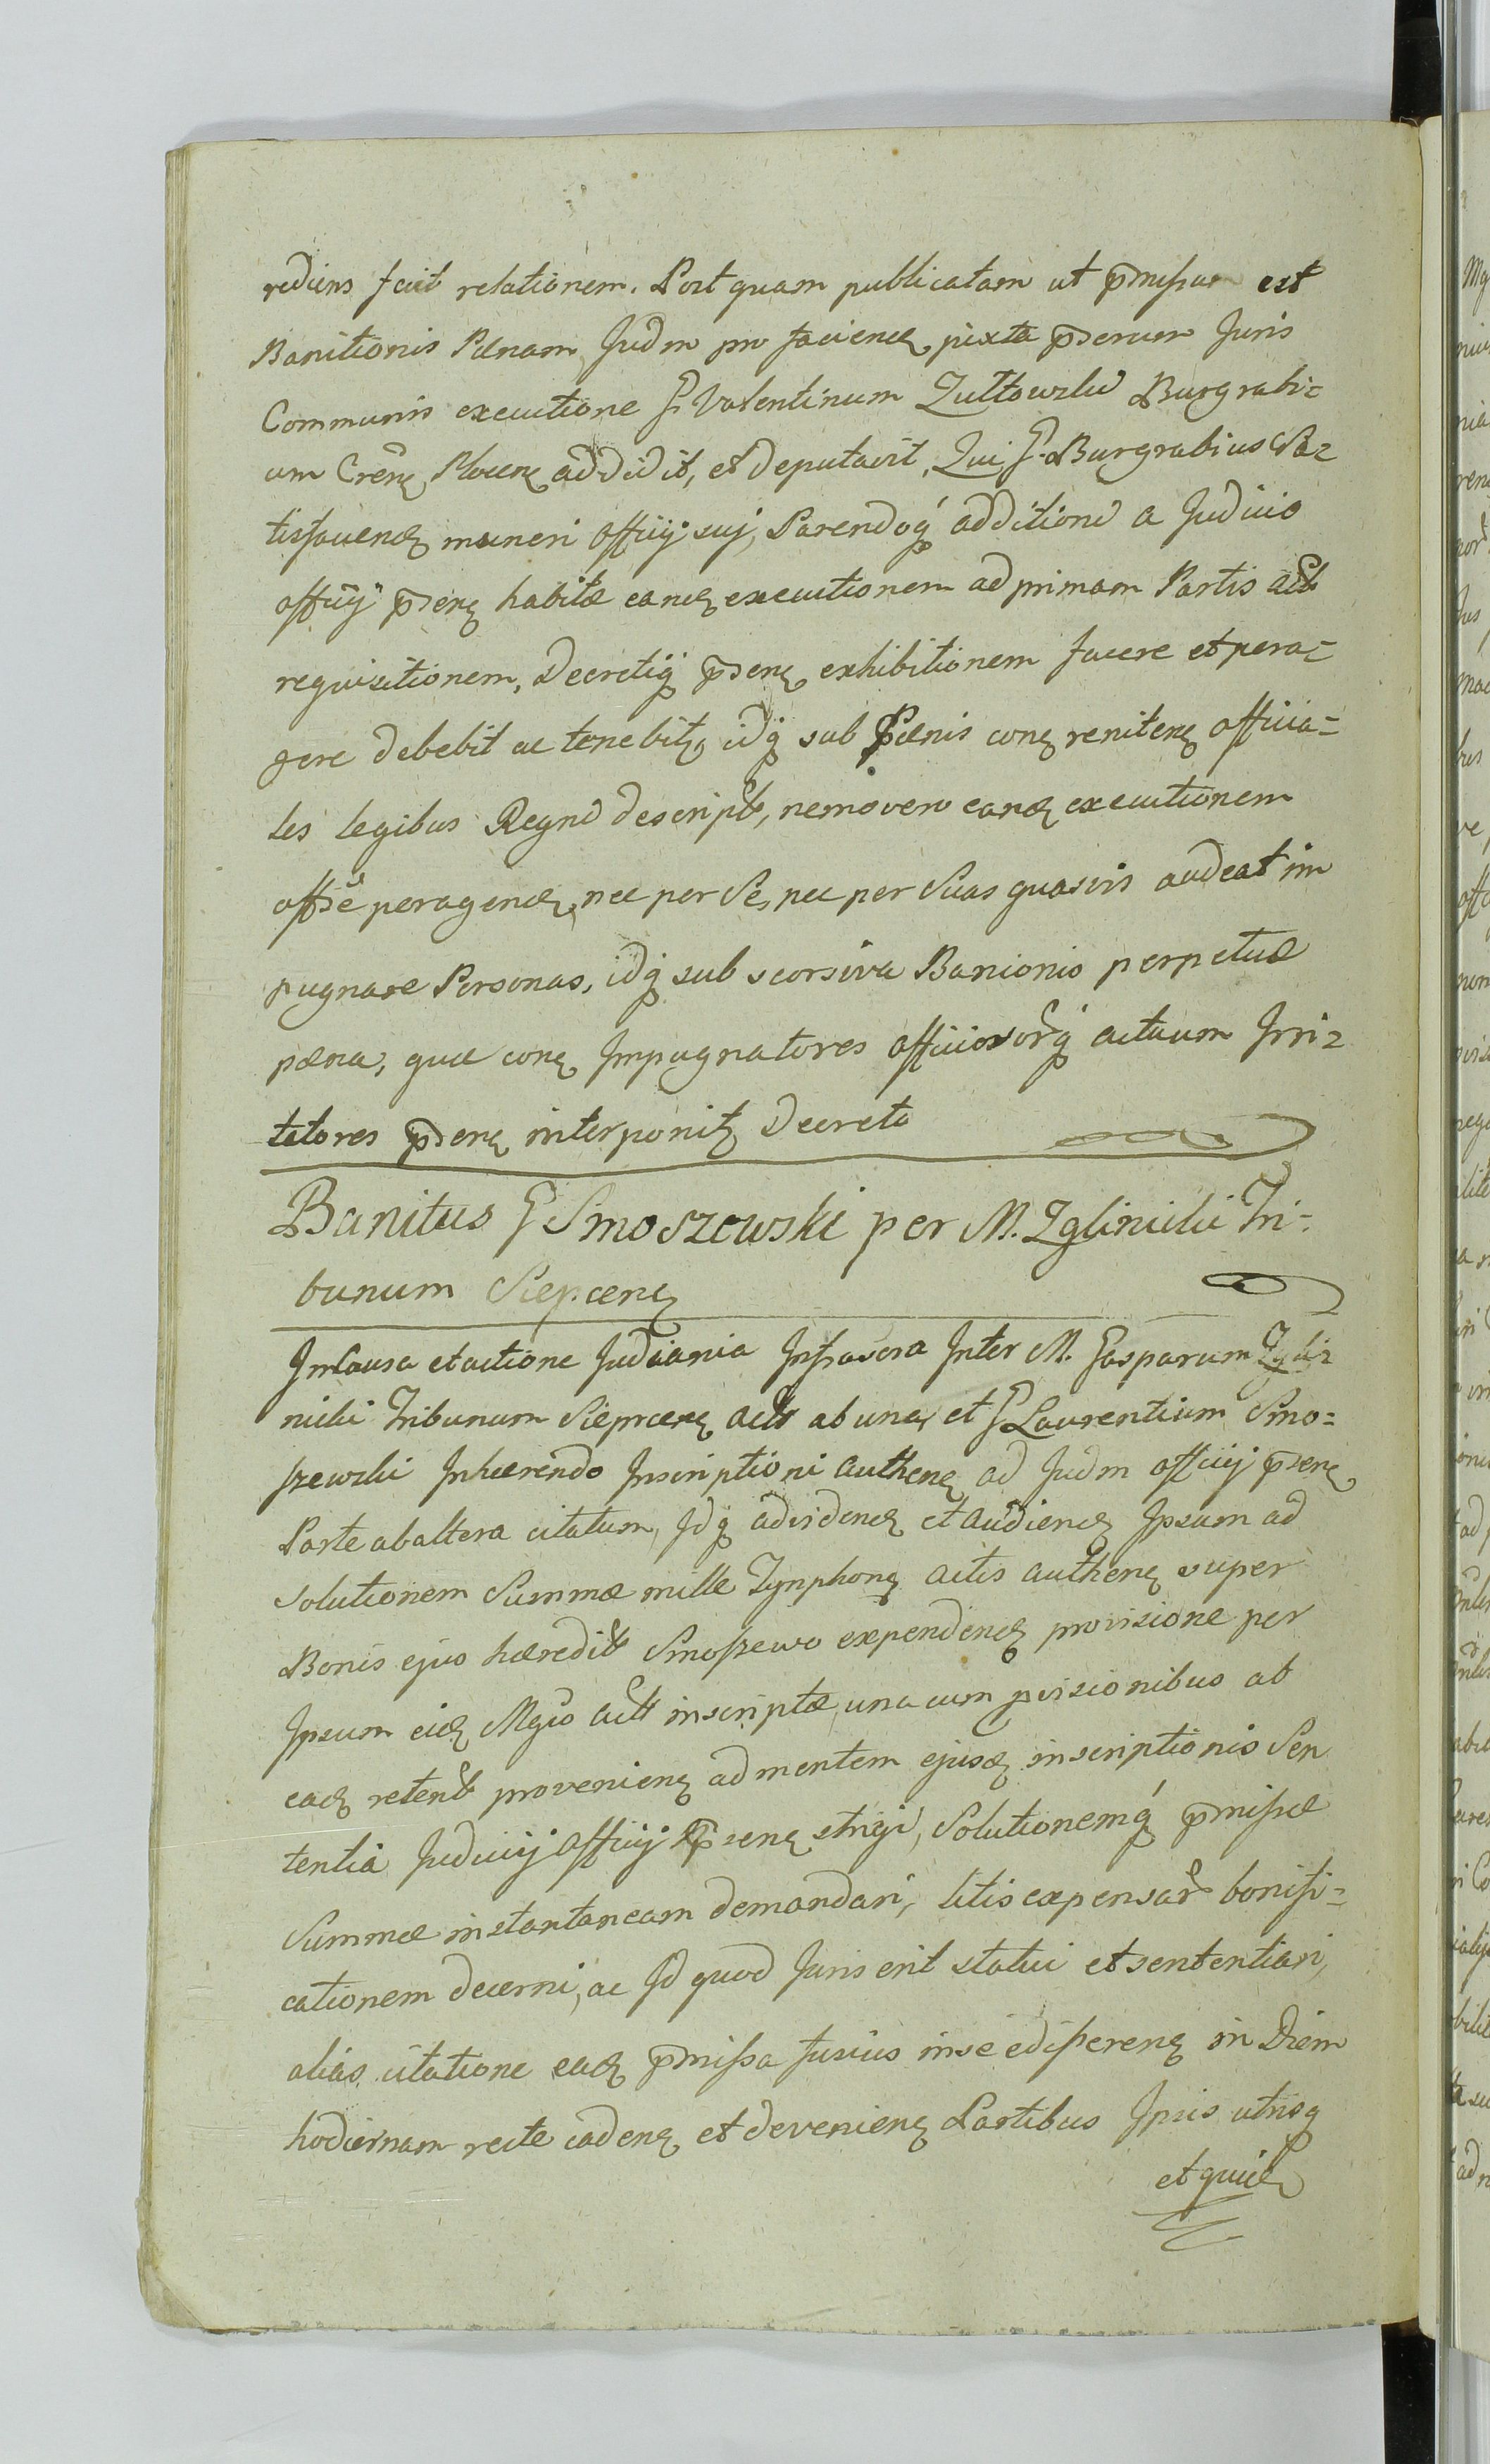 rediens fecit relationem. Post quam publicatam ut pmissum est
Banitionis Pænam, Judm pro faciend juxta psenem Juris
Communis executione G Valentinum Zułtowski Burgrabi=
um Cren Plocen addidit, et deputavit, Qui G. Burgrabius Sa=
tisfaciend muneri officij suj, Parendoq additioni a Judicio
officij psen habitæ eand executionem ad primam Partis act
requisitionem, Decretiq psen exhibitionem facere et pera=
gere debebit ac tenebit, idq sub Pænis con reniten officia=
les legibus Regni descript, nemo vero eand executionem
offse peragend, nec per Se, nec per Suas quasvis audeat im
pugnare Personas, idq sub seorsiva Banionis perpetuæ
pæna, quæ con Impugnatores officiosorq actuum Irri=
tatores psen interponit Decreto
Banitus G Smoszewski per M. Zglinicki Tri=
bunum Siepcen
In Causa et actione Judiciaria Infrascra Inter M. Gasparum Zgli=
nicki Tribunum Sieprcen act ab una, et G Laurentium Smo=
szewski Inhærendo Inscriptioni authen ad Judm officij psen
Parte ab altera citatum, Idq advidend et audiend Ipsum ad
solutionem Summæ mille Tynphon actis authen super
Bonis ejus hæredit Smoszewo expendend provisione per
Ipsum eid Mgco act inscriptæ una cum pvisionibus ab
ead retent provenien ad mentem ejusd inscriptionis Sen
tentia Judicij Officij psen stringi, Solutionemq pmissæ
Summæ instantaneam demandari, litis expensar bonifi=
cationem decerni, ac Id quod Juris erit statui et sententiari,
alias citatione ead pmissa fusius in se edisseren in Diem
hodiernam recte caden et devenien Partibus Ipsis utrisq
et quid